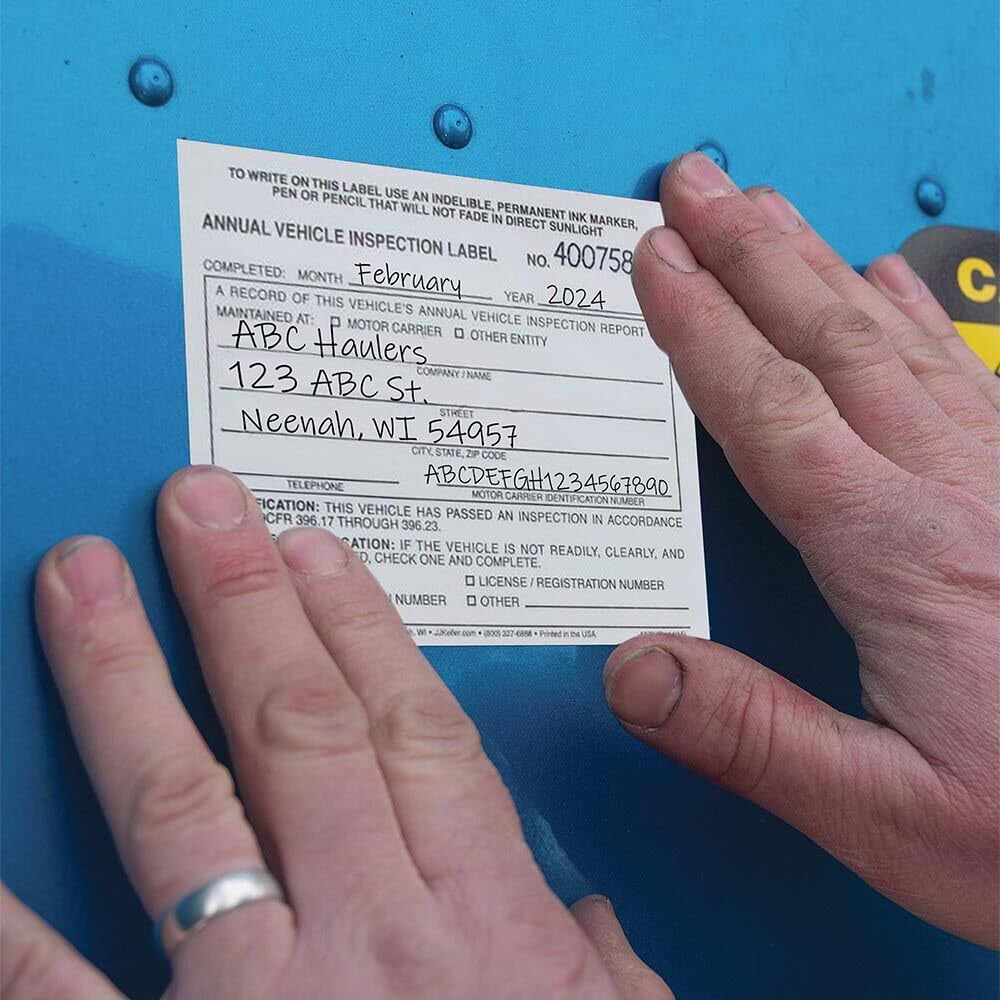 TO WRITE ON THIS LABEL USE AN INDELIBLE, PERMANENT INK MARKER,
PEN OR PENCIL THAT WILL NOT FADE IN DIRECT SUNLIGHT
ANNUAL VEHICLE INSPECTION LABEL NO. 400758
COMPLETED: MONTH February YEAR 2024
A RECORD OF THIS VEHICLE'S ANNUAL VEHICLE INSPECTION REPORT
MAINTAINED AT: ☐ MOTOR CARRIER ☐ OTHER ENTITY
ABC Haulers
COMPANY / NAME
123 ABC St.
STREET
Neenah, WI 54957
CITY, STATE, ZIP CODE
ABCDEFGH1234567890
TELEPHONE MOTOR CARRIER IDENTIFICATION NUMBER
ICATION: THIS VEHICLE HAS PASSED AN INSPECTION IN ACCORDANCE
CFR 396.17 THROUGH 396.23.
CATION: IF THE VEHICLE IS NOT READILY, CLEARLY, AND
D, CHECK ONE AND COMPLETE.
☐ LICENSE / REGISTRATION NUMBER
NUMBER ☐ OTHER
WI • JJKeller.com • (800) 327-6868 • Printed in the USA
C